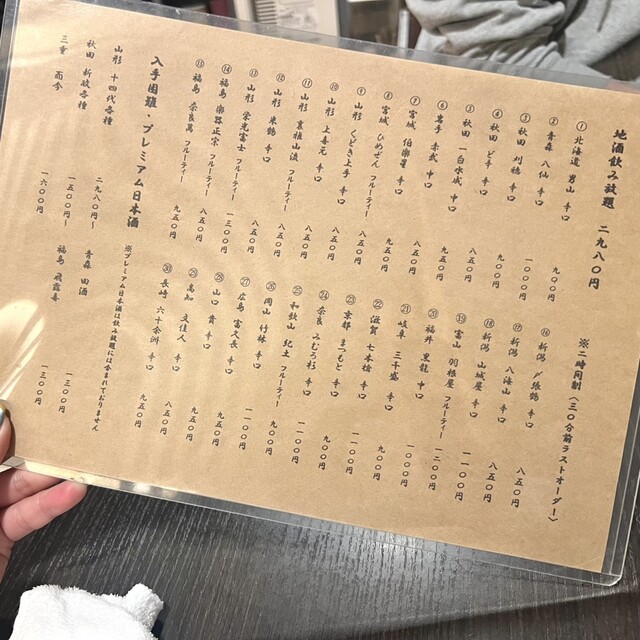 地酒飲み放題 二九八〇円 ※二時間制(三〇分前ラストオーダー)
①北海道 男山 辛口 九〇〇円
②青森 八仙 辛口 一〇〇〇円
③秋田 刈穂 辛口 九〇〇円
④秋田 ど辛 辛口 八五〇円
⑤秋田 一白水成 中口 九五〇円
⑥岩手 赤武 中口 八五〇円
⑦宮城 伯楽星 辛口 九五〇円
⑧宮城 ひめぜん フルーティー 八五〇円
⑨山形 くどき上手 辛口 八五〇円
⑩山形 上喜元 辛口 八五〇円
⑪山形 裏雅山流 フルーティー 八五〇円
⑫山形 米鶴 辛口 八五〇円
⑬山形 栄光冨士 フルーティー 一三〇〇円
⑭福島 楽器正宗 フルーティー 八五〇円
⑮福島 奈良萬 フルーティー 九五〇円
⑯新潟 〆張鶴 辛口 八五〇円
⑰新潟 八海山 辛口 八五〇円
⑱新潟 山城屋 辛口 一一〇〇円
⑲富山 羽根屋 フルーティー 一二〇〇円
⑳福井 黒龍 中口 一〇〇〇円
㉑岐阜 三千盛 辛口 九〇〇円
㉒滋賀 七本槍 辛口 一一〇〇円
㉓京都 まつもと 辛口 九〇〇円
㉔奈良 みむろ杉 辛口 一一〇〇円
㉕和歌山 紀土 フルーティー 九〇〇円
㉖岡山 竹林 辛口 一〇〇〇円
㉗広島 富久長 辛口 九五〇円
㉘山口 貴 辛口 九五〇円
㉙高知 文佳人 辛口 八五〇円
㉚長崎 六十余洲 辛口 九五〇円
入手困難・プレミアム日本酒 ※プレミアム日本酒は飲み放題には含まれておりません
山形 十四代各種 二九八〇円〜
秋田 新政各種 一五〇〇円〜
三重 而今 一六〇〇円
青森 田酒 一三〇〇円
福島 飛露喜 一三〇〇円